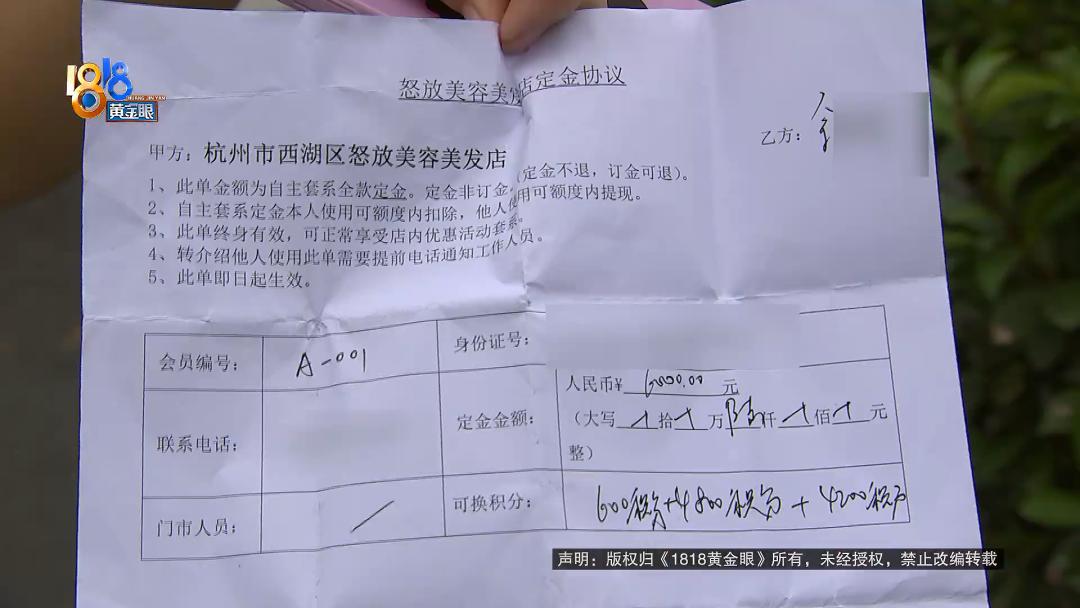 1818
HUANG JIN YAN
黄金眼
怒放美容美发店定金协议
甲方：杭州市西湖区怒放美容美发店
乙方：金
1、此单金额为自主套系全款定金。定金非订金。（定金不退，订金可退）。
2、自主套系定金本人使用可额度内扣除，他人使用可额度内提现。
3、此单终身有效，可正常享受店内优惠活动套系。
4、转介绍他人使用此单需要提前电话通知工作人员。
5、此单即日起生效。
会员编号： A-001 身份证号：
联系电话： 定金金额： 人民币¥ 6000.00 元
（大写 拾 万 陆 仟 佰 元
整）
门市人员： / 可换积分： 600积分+4800积分+4200积分
声明：版权归《1818黄金眼》所有，未经授权，禁止改编转载